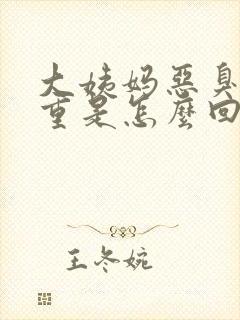 大姨妈惡臭
重是怎麼回
王冬婉